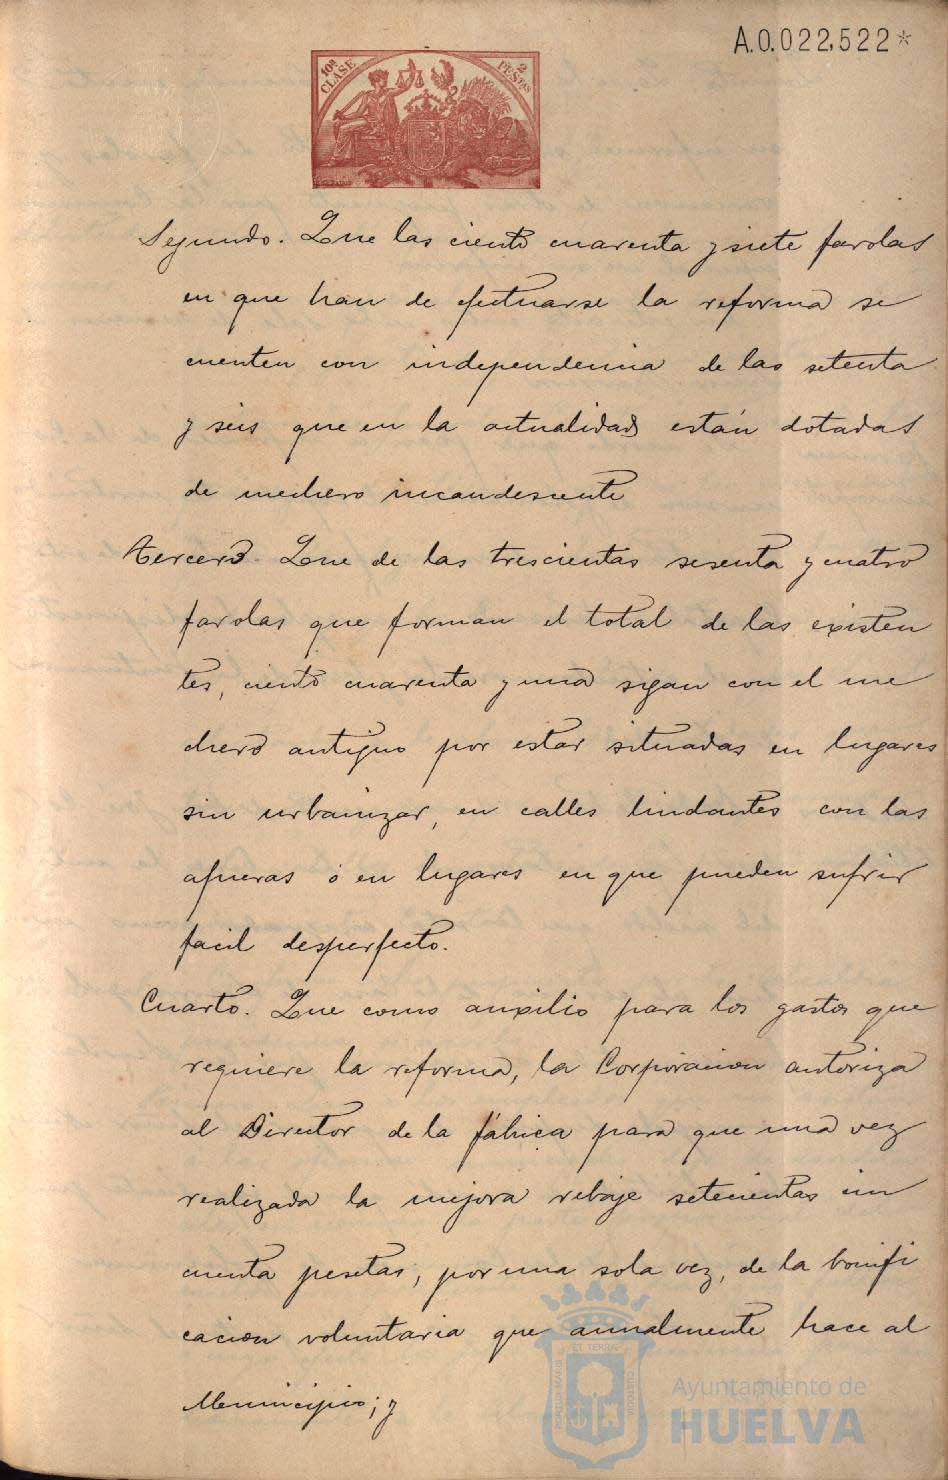 A.0.022,522*
10ª CLASE
2 PESETAS
Segundo. Que las ciento cuarenta y siete farolas
en que han de efectuarse la reforma se
cuenten con independencia de las setenta
y seis que en la actualidad están dotadas
de mechero incandescente
Tercero. Que de las trescientas sesenta y cuatro
farolas que forman el total de las existen
tes, ciento cuarenta y una sigan con el me
chero antiguo por estar situadas en lugares
sin urbanizar, en calles lindantes con las
afueras ó en lugares en que pueden sufrir
facil desperfecto.
Cuarto. Que como auxilio para los gastos que
requiere la reforma, la Corporacion autoriza
al Director de la fábrica para que una vez
realizada la mejora rebaje setecientas cin
cuenta pesetas, por una sola vez, de la bonifi
cacion voluntaria que anualmente hace al
Municipio; y
Ayuntamiento de
HUELVA